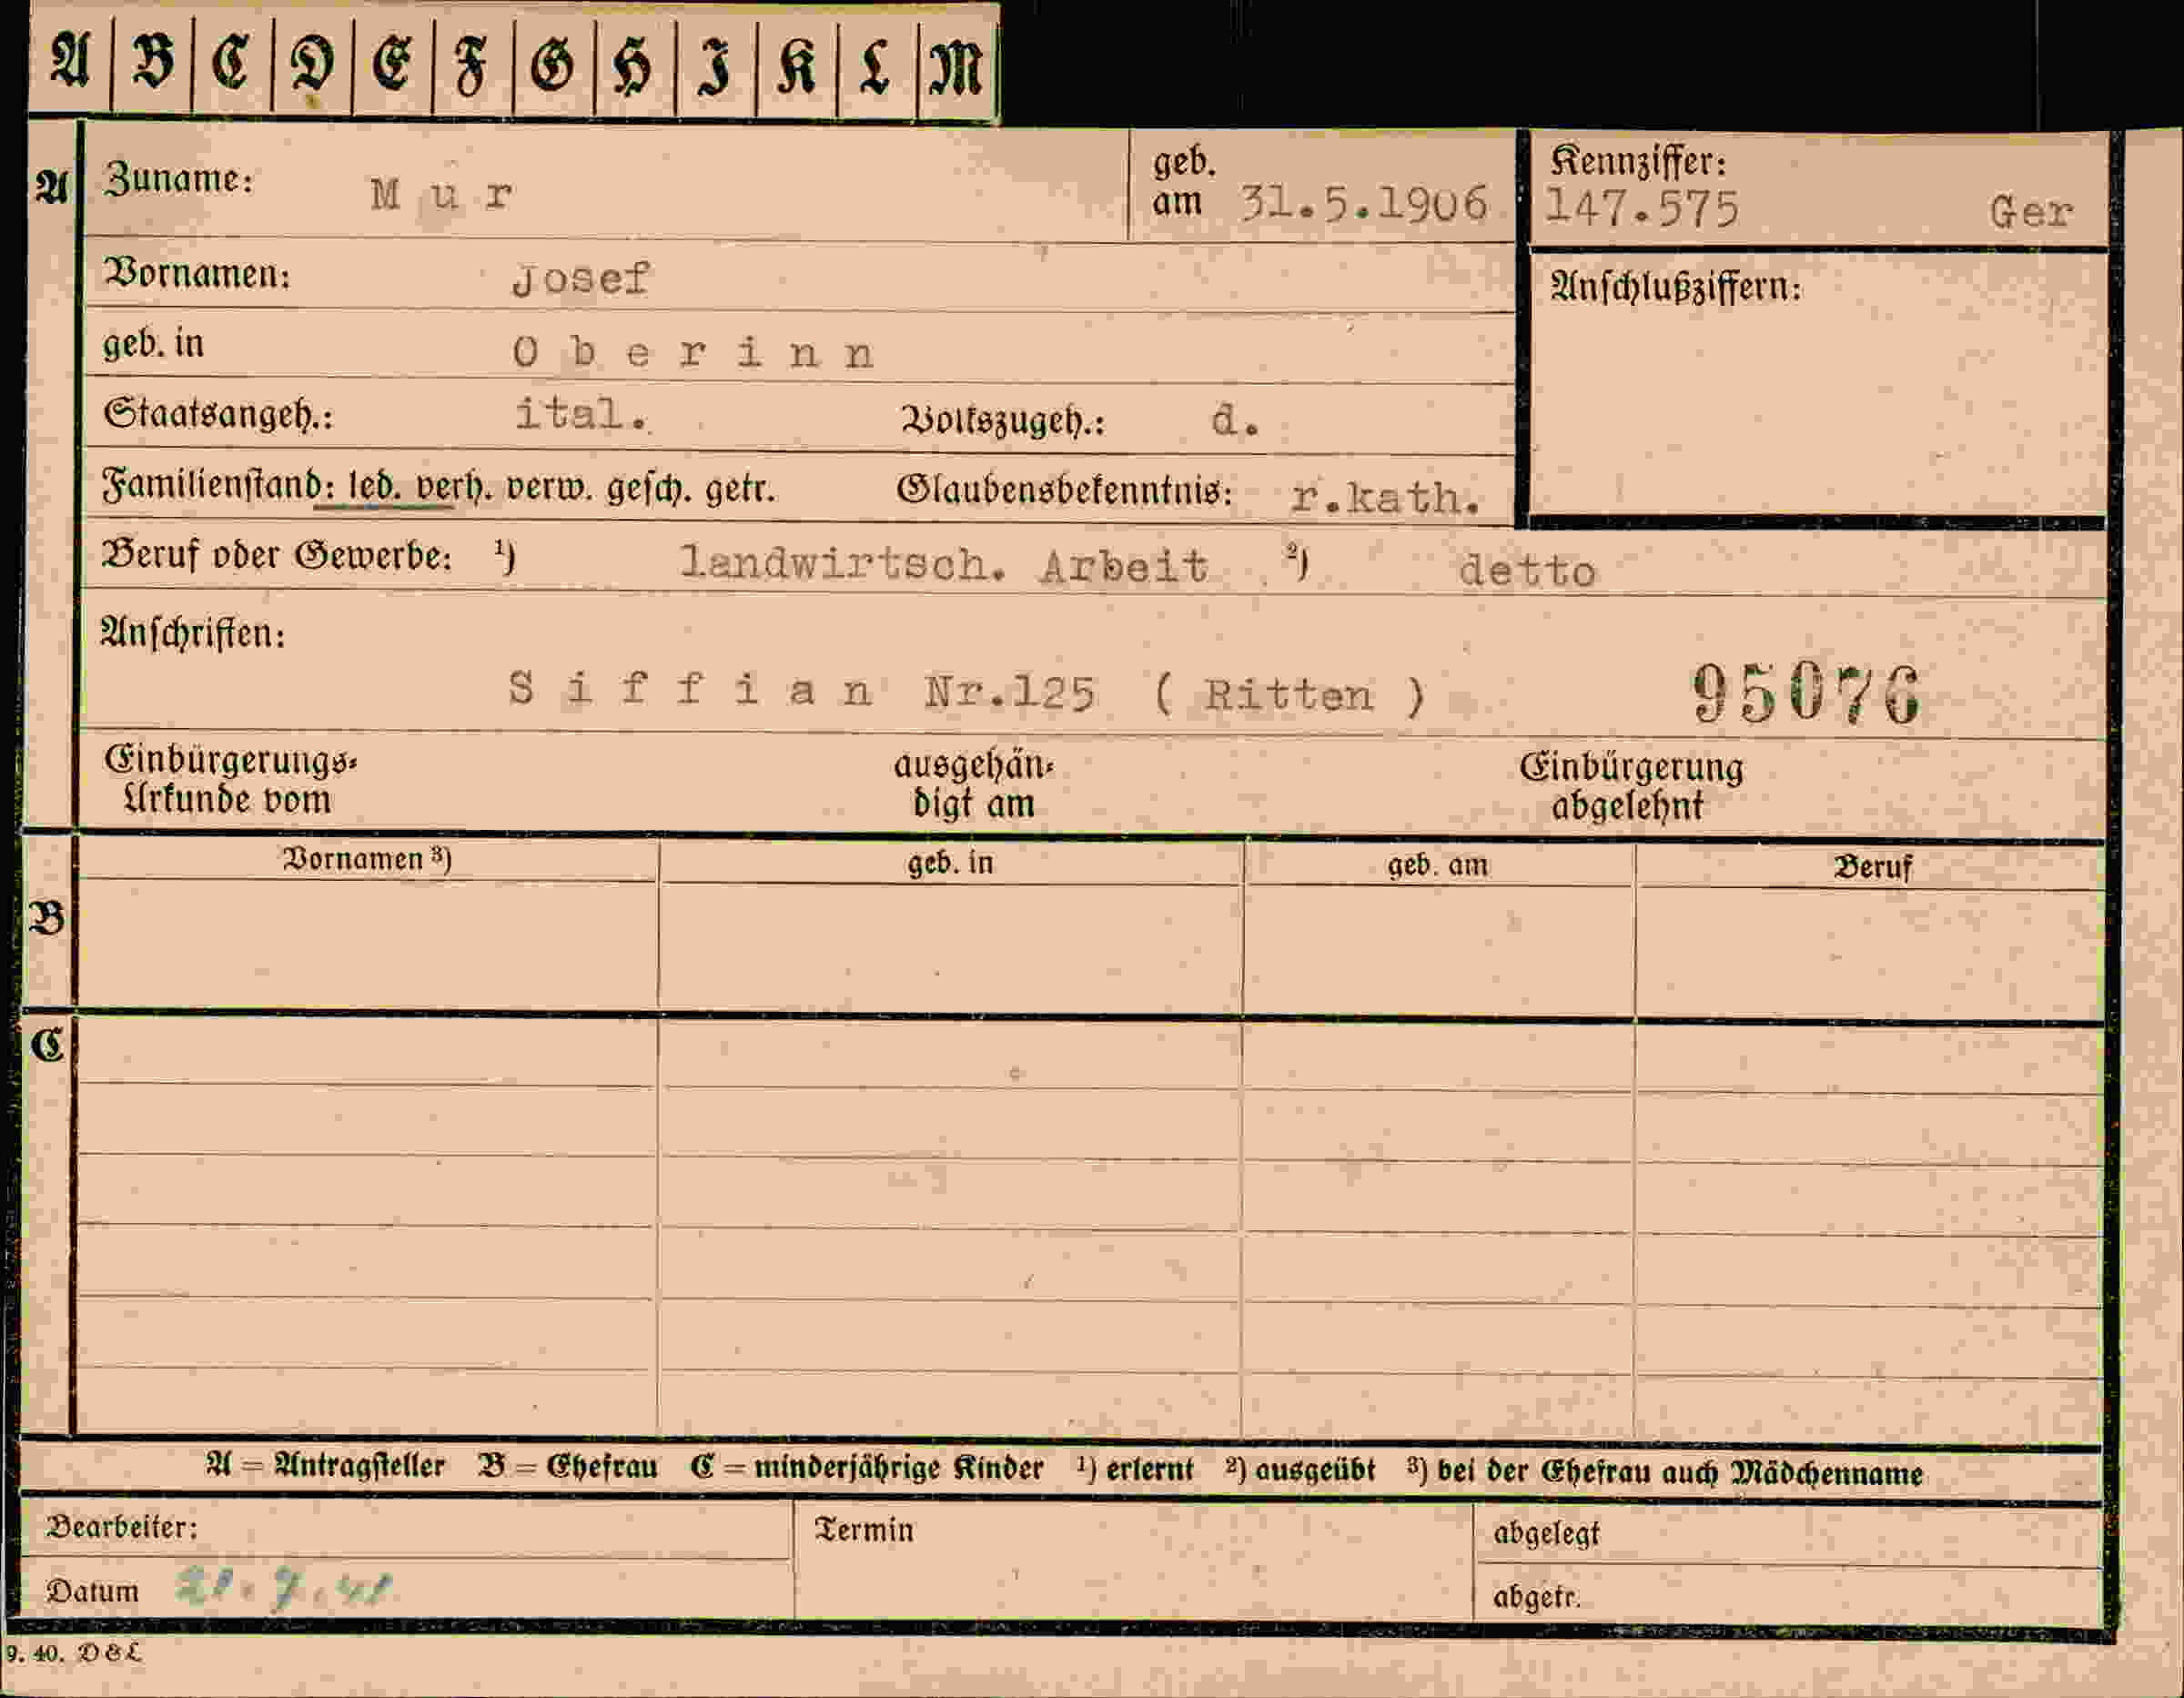 A B C D E F G H I K L M
A Zuname: M u r geb. am 31.5.1906 Kennziffer: 147.575 Ger
Vornamen: Josef Anschlußziffern:
geb. in O b e r i n n
Staatsangeh.: ital. Volkszugeh.: d.
Familienstand: led. verh. verw. gesch. getr. Glaubensbekenntnis: r.kath.
Beruf oder Gewerbe: 1) landwirtsch. Arbeit 2) detto
Anschriften:
S i f f i a n Nr.125 ( Ritten ) 95076
Einbürgerungs- ausgehän- Einbürgerung
Urkunde vom digt am abgelehnt
Vornamen 3) geb. in geb. am Beruf
B
C
A = Antragsteller B = Ehefrau C = minderjährige Kinder 1) erlernt 2) ausgeübt 3) bei der Ehefrau auch Mädchenname
Bearbeiter: Termin abgelegt
Datum 21.7.41 abgetr.
9. 40. D&L